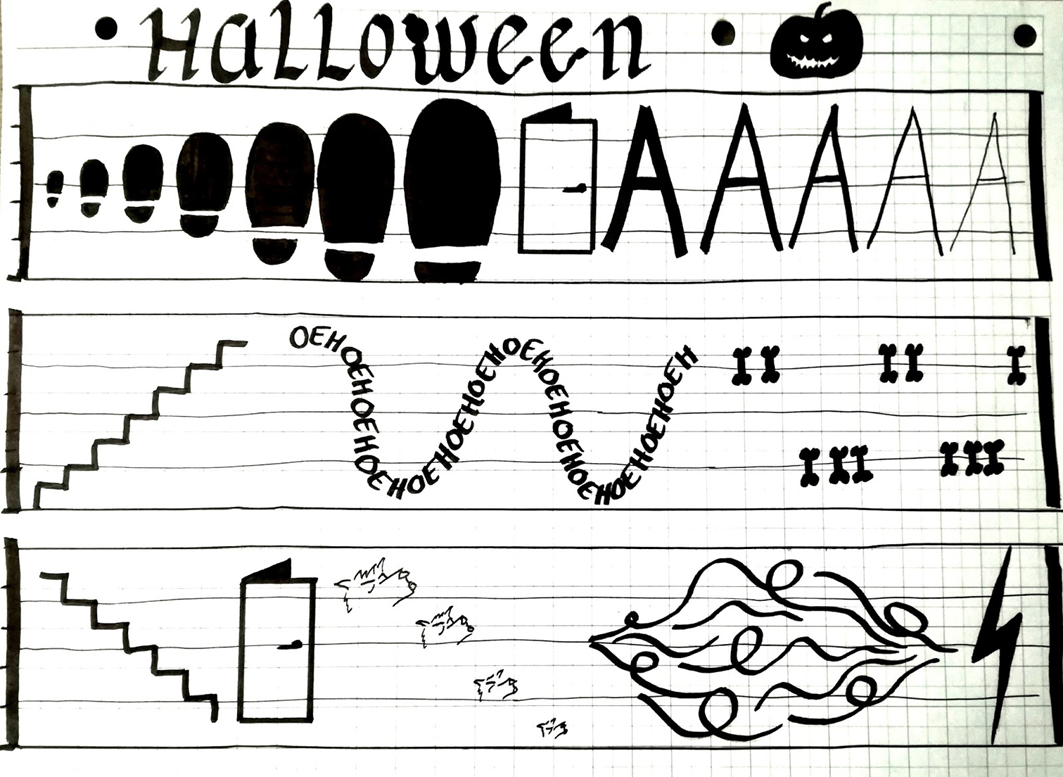 Halloween
A A A A A
OEHOEHOEHOEHOEHOEHOEHOEHOEHOEHOEHOEHOEHOEHOEH